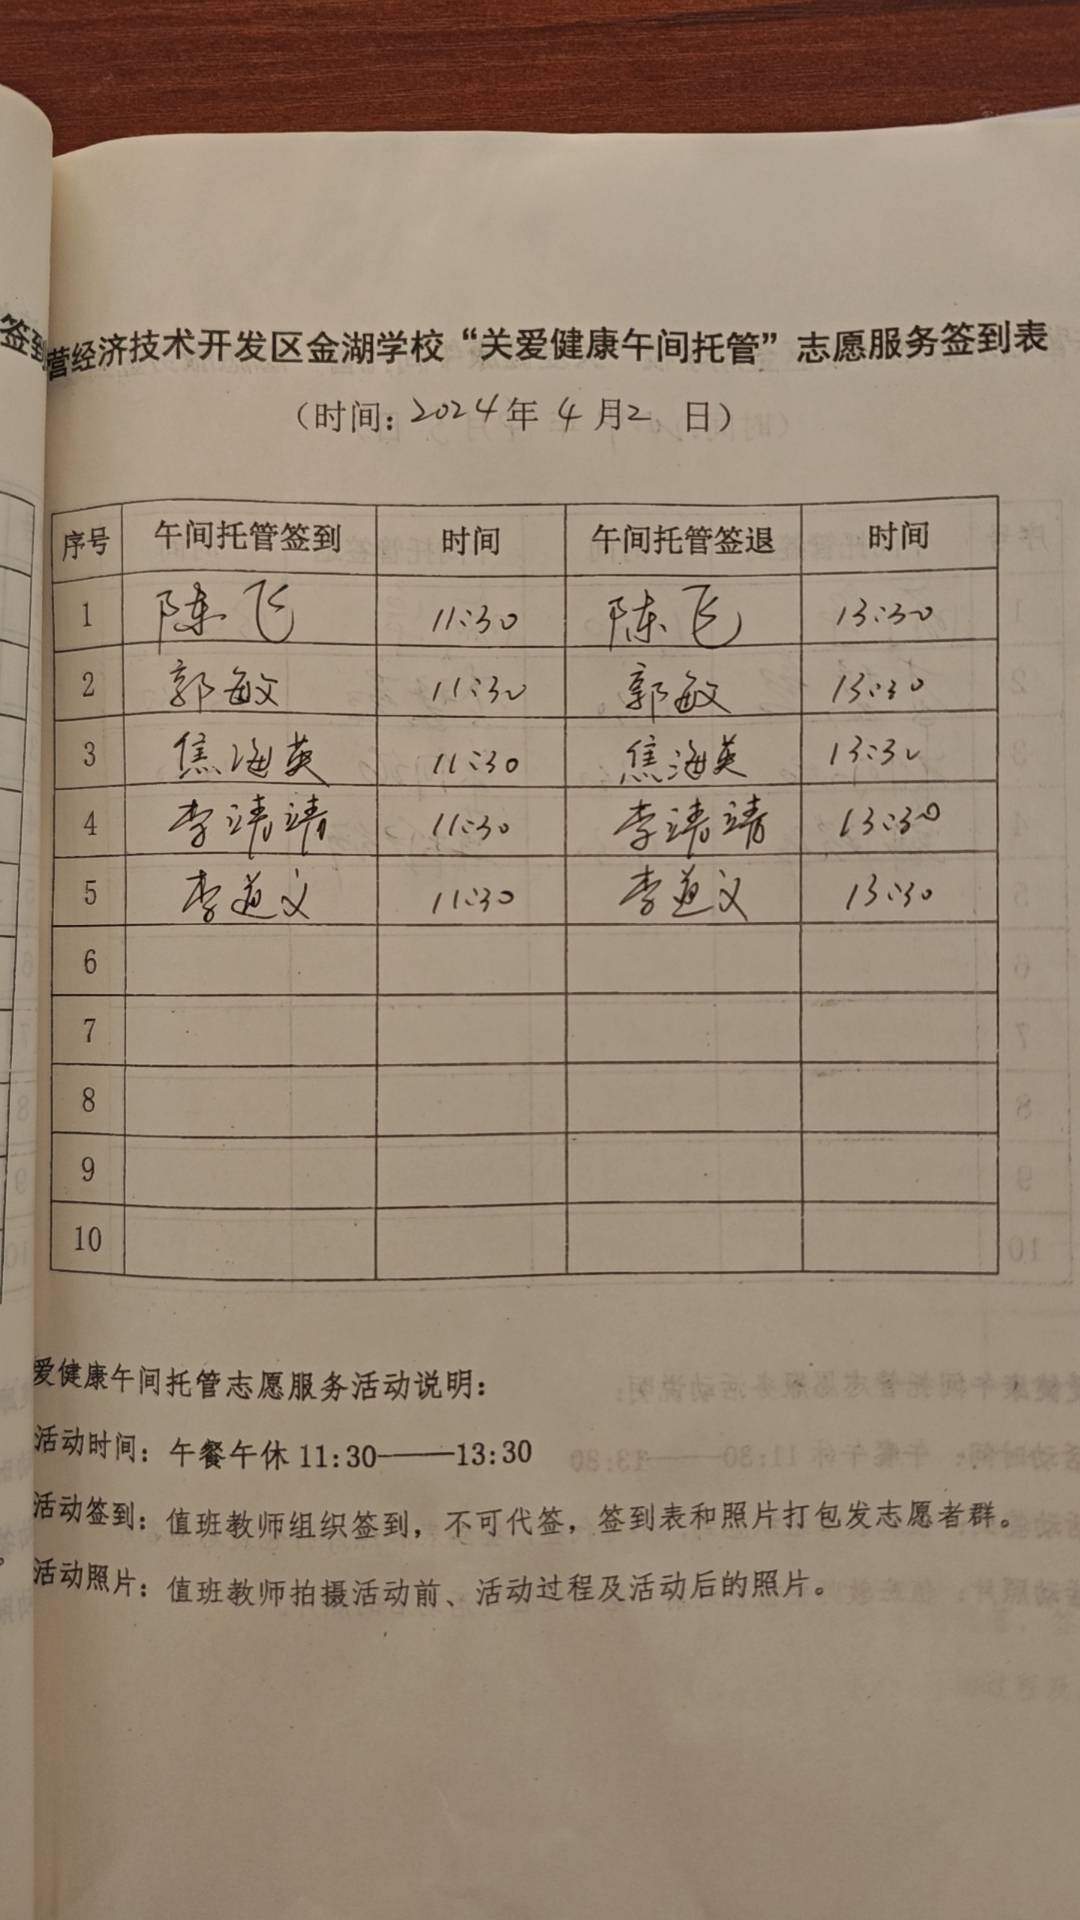 签到
营经济技术开发区金湖学校“关爱健康午间托管”志愿服务签到表
（时间：2024年 4月2 日）
序号 午间托管签到 时间 午间托管签退 时间
1 陈飞 11:30 陈飞 13:30
2 郭敏 11:30 郭敏 13:30
3 焦海英 11:30 焦海英 13:30
4 李靖靖 11:30 李靖靖 13:30
5 李道义 11:30 李道义 13:30
6
7
8
9
10
爱健康午间托管志愿服务活动说明：
活动时间：午餐午休 11:30——13:30
活动签到：值班教师组织签到，不可代签，签到表和照片打包发志愿者群。
活动照片：值班教师拍摄活动前、活动过程及活动后的照片。